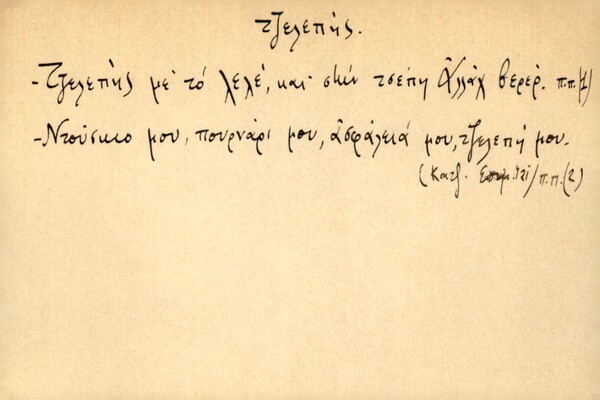 τζελεπής.
-Τζελεπής με τό λελέ, και στήν τσέπη Ἀλλάχ βερέρ. π.π.(1)
-Ντούσκο μου, πουρνάρι μου, ἀσφάλειά μου, τζελεπή μου.
(Κατζ. π.π.(2)